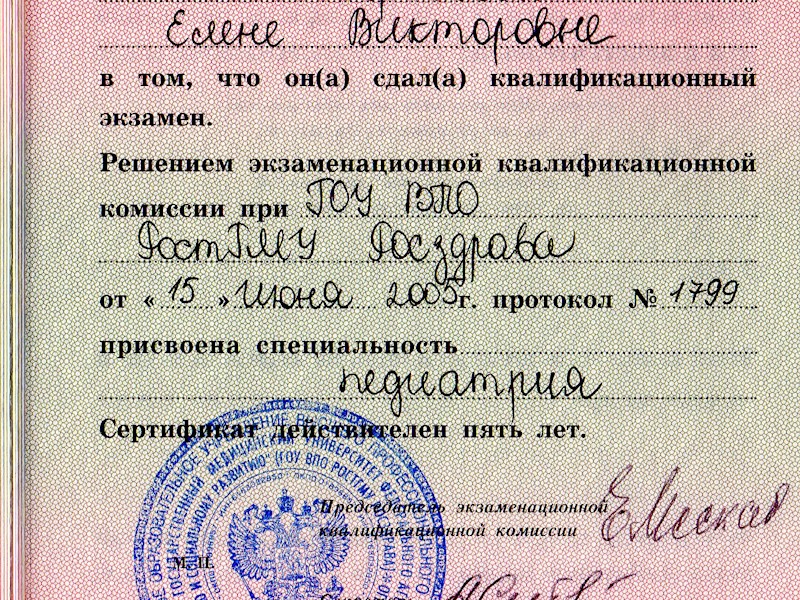 Елене Викторовне
в том, что он(а) сдал(а) квалификационный
экзамен.
Решением экзаменационной квалификационной
комиссии при ГОУ ВПО
РостГМУ Росздрава
от « 15 » июня 2005г. протокол № 1799
присвоена специальность
педиатрия
Сертификат действителен пять лет.
Председатель экзаменационной
квалификационной комиссии
М. П.